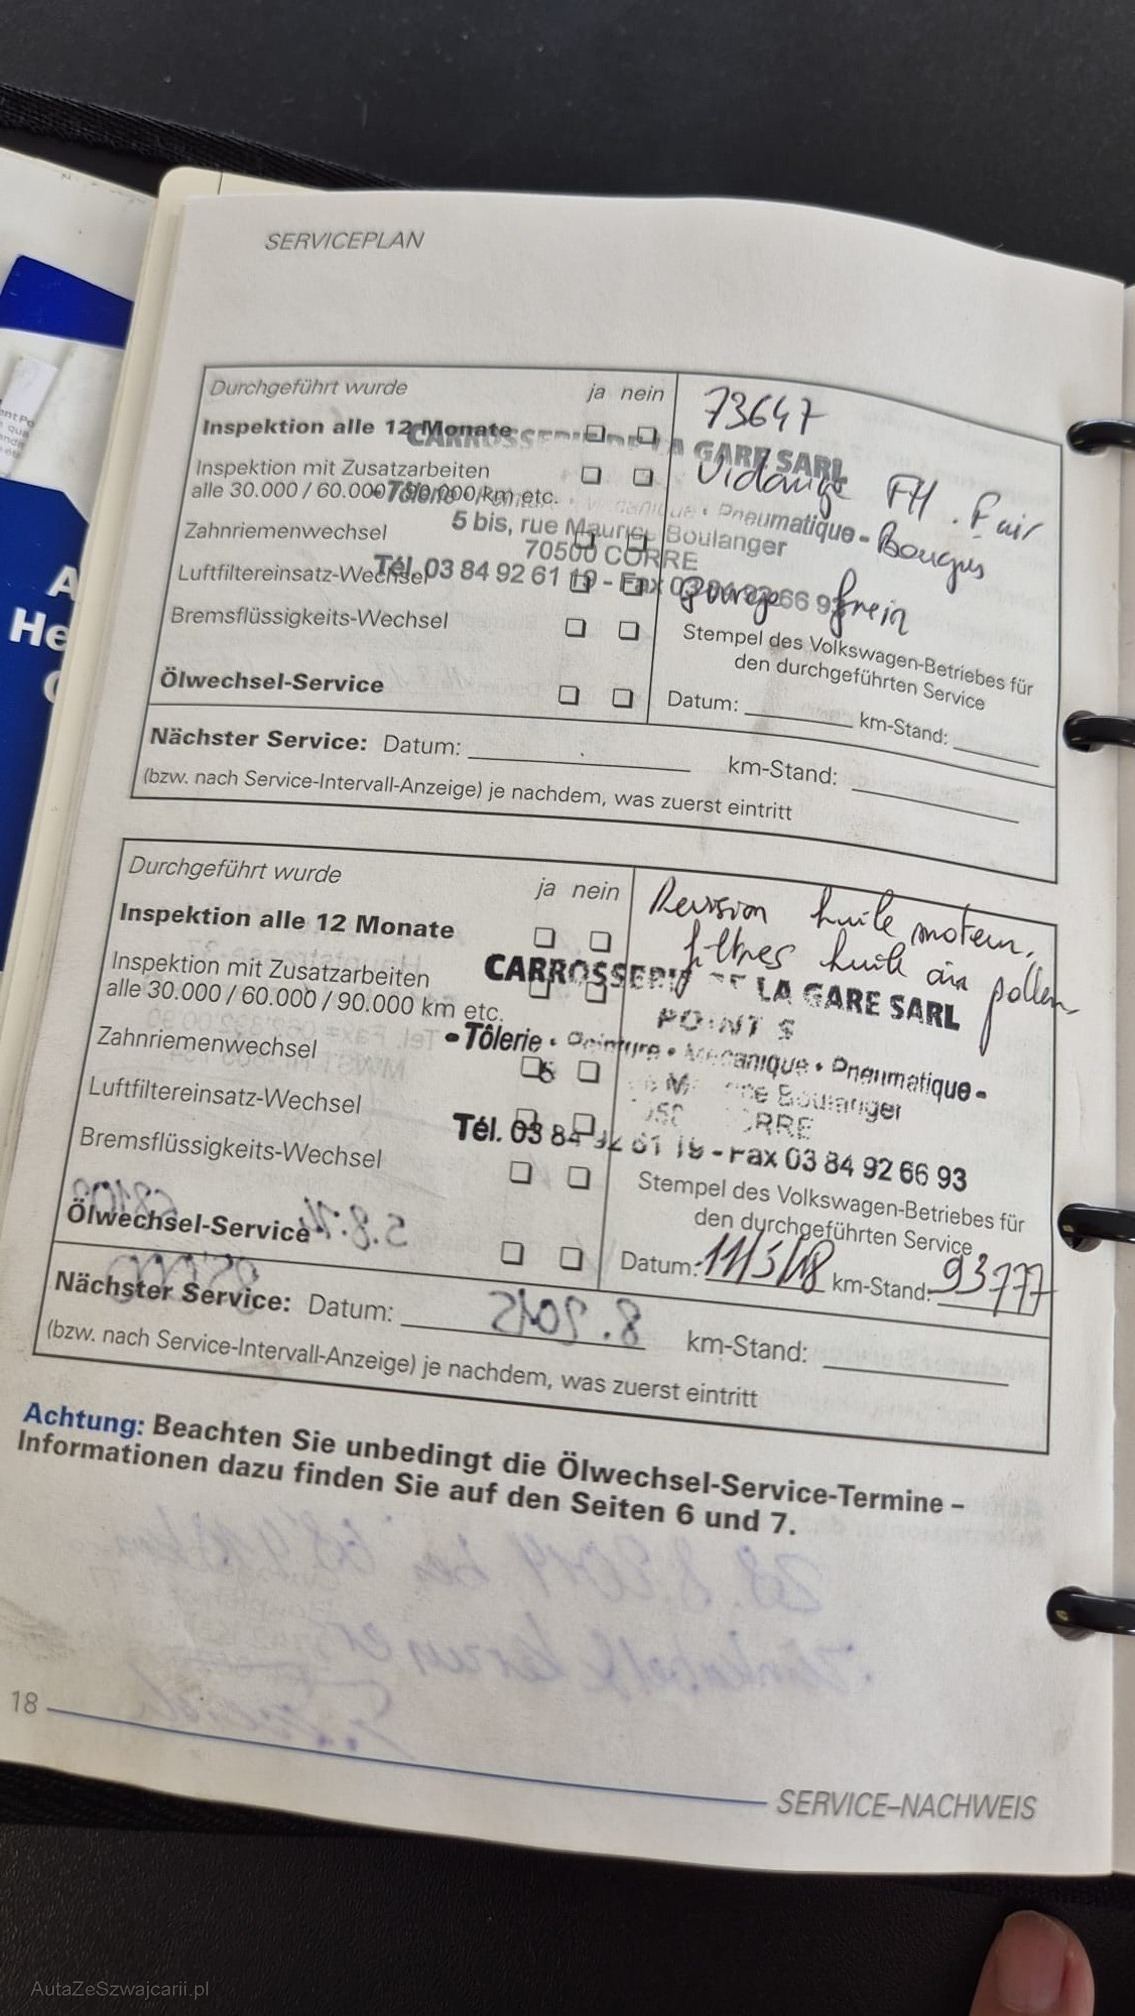 SERVICEPLAN
Durchgeführt wurde ja nein
73647
Inspektion alle 12 Monate
CARROSSERIE DE LA GARE SARL
Inspektion mit Zusatzarbeiten
Vidange FH . F air
alle 30.000 / 60.000 / 90.000 km etc.
• Tôlerie • Peinture • Mécanique • Pneumatique -
Bougies
Zahnriemenwechsel
5 bis, rue Maurice Boulanger
70500 CORRE
Luftfiltereinsatz-Wechsel
Tél. 03 84 92 61 19 - Fax 03 84 92 66 93
Purge frein
Bremsflüssigkeits-Wechsel
Stempel des Volkswagen-Betriebes für
den durchgeführten Service
Ölwechsel-Service
Datum: km-Stand:
Nächster Service: Datum: km-Stand:
(bzw. nach Service-Intervall-Anzeige) je nachdem, was zuerst eintritt
Durchgeführt wurde ja nein
Revision huile moteur,
Inspektion alle 12 Monate
filtres huile air pollen
Inspektion mit Zusatzarbeiten
CARROSSERIE DE LA GARE SARL
alle 30.000 / 60.000 / 90.000 km etc.
POINT S
Zahnriemenwechsel
• Tôlerie • Peinture • Mécanique • Pneumatique -
Boulanger
Luftfiltereinsatz-Wechsel
CORRE
Tél. 03 84 92 61 19 - Fax 03 84 92 66 93
Bremsflüssigkeits-Wechsel
Stempel des Volkswagen-Betriebes für
den durchgeführten Service
Ölwechsel-Service
Datum: 11/5/18 km-Stand: 93777
Nächster Service: Datum: km-Stand:
(bzw. nach Service-Intervall-Anzeige) je nachdem, was zuerst eintritt
Achtung: Beachten Sie unbedingt die Ölwechsel-Service-Termine –
Informationen dazu finden Sie auf den Seiten 6 und 7.
18
SERVICE–NACHWEIS
AutaZeSzwajcarii.pl